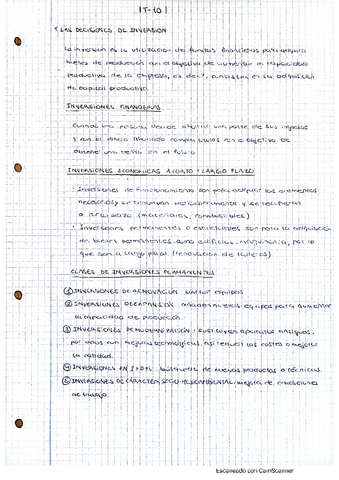 IT-10|
1. LAS DECISIONES DE INVERSION
La inversión es la utilización de fondos financieros para adquirir
bienes de producción con el objetivo de aumentar la capacidad
productiva de la empresa, es decir, consiste en la adquisición
de capital productivo.
INVERSIONES FINANCIERAS
Cuando una persona decide ahorrar una parte de sus ingresos
y con el dinero ahorrado compra con el objetivo de
obtener una renta en el futuro
INVERSIONES ECONOMICAS A CORTO Y LARGO PLAZO
· Inversiones de funcionamiento son para adquirir los elementos
necesarios y se renuevan y se recuperan
a corto plazo (materiales, combustibles)
· Inversiones permanentes o estructurales son para la adquisición
de bienes permanentes como edificios, maquinaria, por lo
que son a largo plazo. (renovación de talleres)
CLASES DE INVERSIONES PERMANENTES
① INVERSIONES DE RENOVACIÓN: equipos
② INVERSIONES DE EXPANSIÓN: añaden nuevos equipos para aumentar
la capacidad de producción.
③ INVERSIONES DE MODERNIZACIÓN: sustituyen aparatos antiguos,
por otros con mejoras tecnológicas, así reducir los costes o mejorar
la calidad.
④ INVERSIONES EN I+D+i: búsqueda de nuevos productos o técnicas.
⑤ INVERSIONES DE CARÁCTER SOCIO-MEDIOAMBIENTAL: mejora de condiciones
de trabajo.
Escaneado con CamScanner